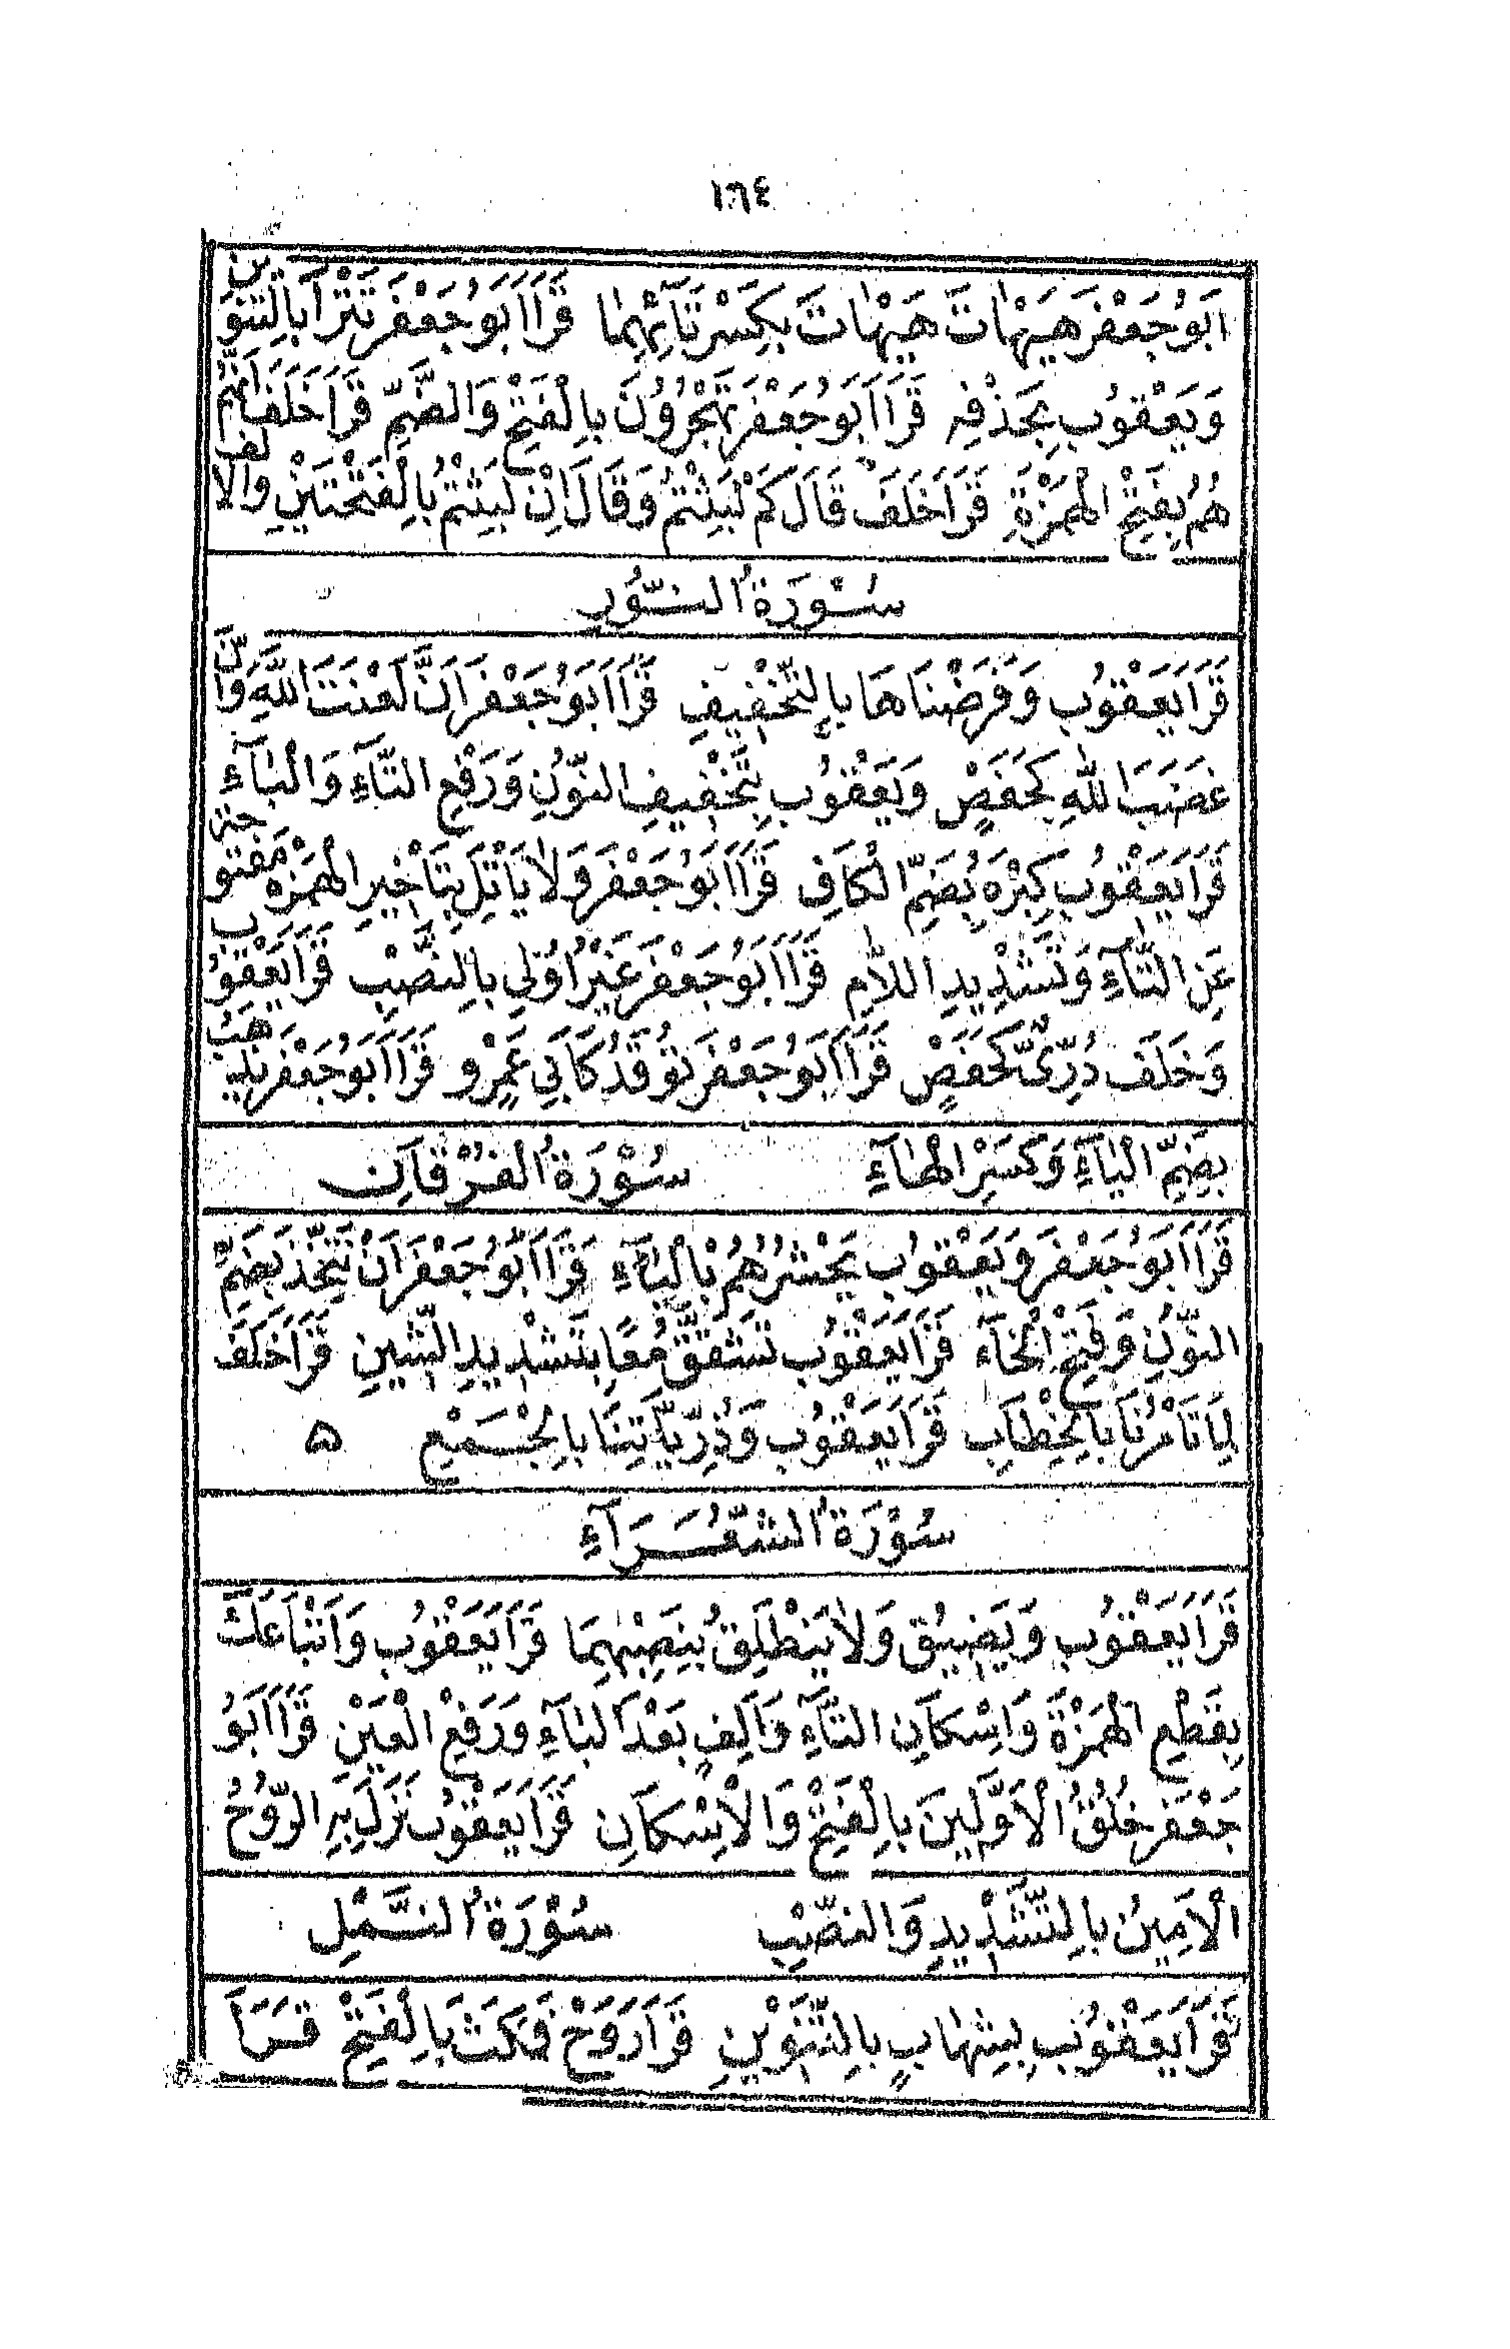 ١٦٤
اَبُوجَعْفَر هَيْهَاتَ هَيْهَاتَ بِكَسْرِ تَآئِهِمَا قَرَأَ اَبُوجَعْفَرَ تَتْرًا بِالتَّنْوِينِ
وَيَعْقُوبُ بِحَذْفِهِ قَرَأَ اَبُوجَعْفَرَ تَهْجُرُوْنَ بِالْفَتْحِ وَالضَّمِّ قَرَأَ خَلَفَ اَنَّهُمْ
هُمُ بِفَتْحِ الْهَمْزَةِ قَرَأَ خَلَفَ قَالَ كَمْ لَبِثْتُمْ وَقَالَ اِنْ لَبِثْتُمْ بِالْفَتْحَتَيْنِ وَالْاَلِفِ
سُوْرَةُ النُّوْرِ
قَرَأَ يَعْقُوبُ وَفَرَضْنَاهَا بِالتَّخْفِيفِ قَرَأَ اَبُوجَعْفَرَ اَنَّ لَعْنَتَ اللّٰهِ وَاَنَّ
غَضَبَ اللّٰهِ كَحَفْصٍ وَيَعْقُوبُ بِتَخْفِيفِ النُّوْنِ وَرَفْعِ التَّآءِ وَالْبَآءِ
قَرَأَ يَعْقُوبُ كِبْرَهُ بِضَمِّ الْكَافِ قَرَأَ اَبُوجَعْفَرَ وَلَا يَاْتَلِ بِتَاْخِيرِ الْهَمْزَةِ مَفْتُوحَةً
عَنِ التَّآءِ وَتَشْدِيدِ اللَّامِ قَرَأَ اَبُوجَعْفَرَ غَيْرَ اُوْلِي بِالنَّصْبِ قَرَأَ يَعْقُوبُ
وَخَلَفَ دُرِّىٌّ كَحَفْصٍ قَرَأَ اَبُوجَعْفَرَ تَوَقَّدَ كَاَبِي عَمْرٍو قَرَأَ اَبُوجَعْفَرَ يُذْهِبُ
بِضَمِّ الْيَآءِ وَكَسْرِ الْهَآءِ سُوْرَةُ الْفُرْقَانِ
قَرَأَ اَبُوجَعْفَرَ وَيَعْقُوبُ يَحْشُرُهُمْ بِالْيَآءِ قَرَأَ اَبُوجَعْفَرَ اَنْ نُتَّخَذَ بِضَمِّ
النُّوْنِ وَفَتْحِ الْخَآءِ قَرَأَ يَعْقُوبُ تَشَّقَّقُ مَعًا بِتَشْدِيدِ الشِّينِ قَرَأَ خَلَفَ
لِمَا تَاْمُرُنَا بِالْخِطَابِ قَرَأَ يَعْقُوبُ وَذُرِّيَّاتِنَا بِالْجَمْعِ ه
سُوْرَةُ الشُّعَرَآءِ
قَرَأَ يَعْقُوبُ وَيَضِيْقَ وَلَا يَنْطَلِقَ بِنَصْبِهِمَا قَرَأَ يَعْقُوبُ وَاَتْبَاعُكَ
بِقَطْعِ الْهَمْزَةِ وَاِسْكَانِ التَّآءِ وَاَلِفٍ بَعْدَ الْبَآءِ وَرَفْعِ الْعَيْنِ قَرَأَ اَبُو
جَعْفَرَ خُلُقُ الْاَوَّلِينَ بِالْفَتْحِ وَالْاِسْكَانِ قَرَأَ يَعْقُوبُ نَزَّلَ بِهِ الرُّوحُ
الْاَمِينُ بِالتَّشْدِيدِ وَالنَّصْبِ سُوْرَةُ النَّمْلِ
قَرَأَ يَعْقُوبُ بِشِهَابٍ بِالتَّنْوِيْنِ قَرَأَ رَوْحٌ فَمَكَثَ بِالْفَتْحِ قَرَأَ